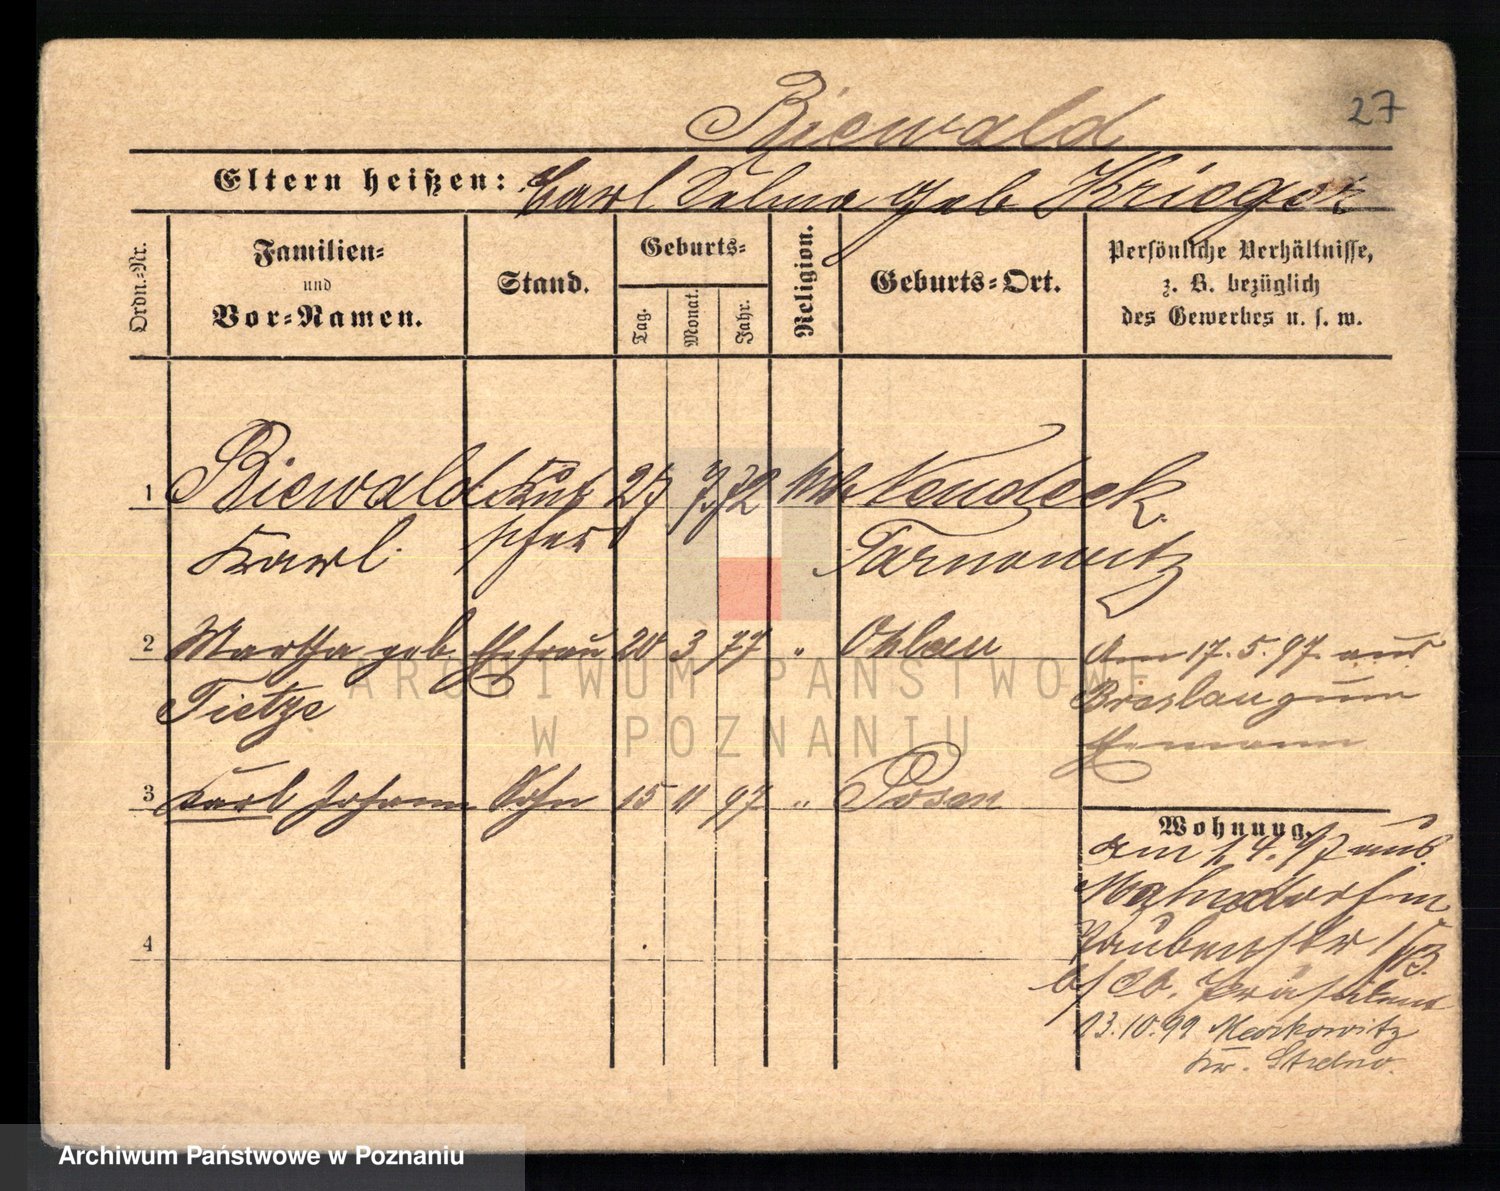 27
Biewald
Eltern heißen: Karl Selma geb Krieger
Ordn.-Nr.
Familien-
und
Vor-Namen.
Stand.
Geburts-
Tag.
Monat.
Jahr.
Religion.
Geburts-Ort.
Persönliche Verhältnisse,
z. B. bezüglich
des Gewerbes u. s. w.
1 Biewald 7 72 Neudeck
Karl Tarnowitz
2 Martha geb Ehefrau 20 3 77 " Ohlau
Tietze
Am 17.5.97 aus
Breslau zum
Ehemann
3 Karl Johann Sohn 15 11 97 " Posen
Wohnung.
am 1.4.97 aus
4
13.10.99 Markowitz
Kr. Strelno.
ARCHIWUM PAŃSTWOWE
W POZNANIU
Archiwum Państwowe w Poznaniu